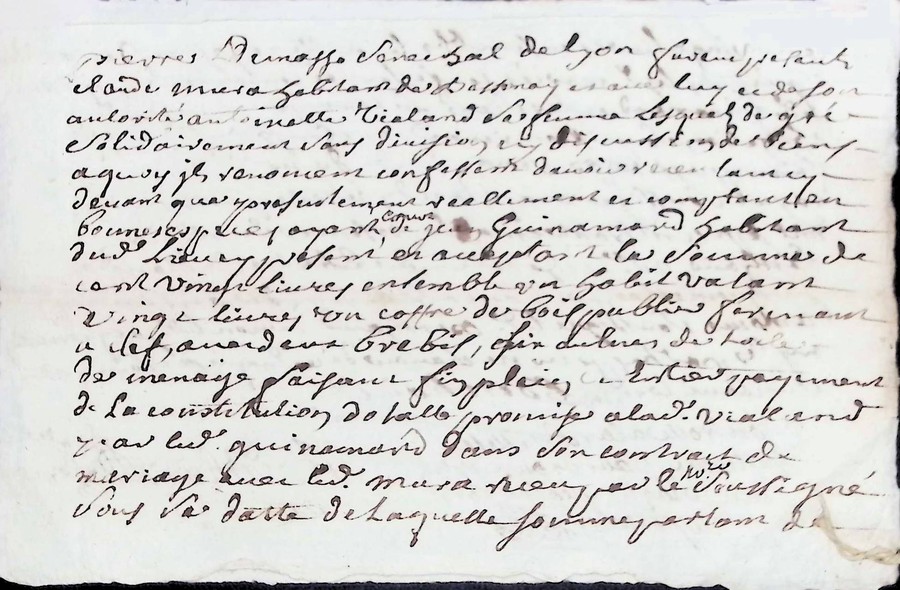 pierres Demasso Senechal de Lyon furent presents
claude mura habitant de avec luy et de son
autorité antoinette Vialand Sa femme Lesquels de gré
Solidairement Sans division ny discussion de biens
a quoy ils renoncent confessent d'avoir receu
devant que presentement reellement et comptant en
bonnes especes ayant cours de jean Guinamard habitant
dud. present et acceptant la Somme de
cent vingt livres ensemble un habit valant
vingt livres un coffre de bois publie fermant
a clef, avec deux brebis, six aulnes de toile
de menage faisant fin plein et entier payement
de La constitution dotalle promise a lad. vialand
par led. guinamard dans Son contract de
mariage avec led. mura receu par le no.re Soussigné
Sous Sa datte de Laquelle Somme partant de